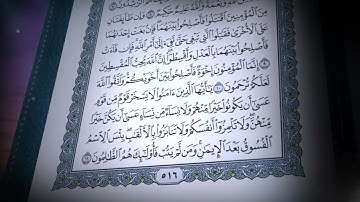 مِنَ ٱلْمُؤْمِنِينَ ٱقْتَتَلُوا۟ فَأَصْلِحُوا۟ بَيْنَهُمَا ۖ فَإِنۢ بَغَتْ إِحْدَىٰهُمَا
عَلَى ٱلْأُخْرَىٰ فَقَٰتِلُوا۟ ٱلَّتِى تَبْغِى حَتَّىٰ تَفِىٓءَ إِلَىٰٓ أَمْرِ ٱللَّهِ ۚ فَإِن فَآءَتْ
فَأَصْلِحُوا۟ بَيْنَهُمَا بِٱلْعَدْلِ وَأَقْسِطُوٓا۟ ۖ إِنَّ ٱللَّهَ يُحِبُّ ٱلْمُقْسِطِينَ
٩ إِنَّمَا ٱلْمُؤْمِنُونَ إِخْوَةٌ فَأَصْلِحُوا۟ بَيْنَ أَخَوَيْكُمْ ۚ وَٱتَّقُوا۟ ٱللَّهَ
لَعَلَّكُمْ تُرْحَمُونَ ١٠ يَٰٓأَيُّهَا ٱلَّذِينَ ءَامَنُوا۟ لَا يَسْخَرْ قَوْمٌ مِّن قَوْمٍ
عَسَىٰٓ أَن يَكُونُوا۟ خَيْرًا مِّنْهُمْ وَلَا نِسَآءٌ مِّن نِّسَآءٍ عَسَىٰٓ أَن يَكُنَّ خَيْرًا
مِّنْهُنَّ ۖ وَلَا تَلْمِزُوٓا۟ أَنفُسَكُمْ وَلَا تَنَابَزُوا۟ بِٱلْأَلْقَٰبِ ۖ بِئْسَ ٱلِٱسْمُ
ٱلْفُسُوقُ بَعْدَ ٱلْإِيمَٰنِ ۚ وَمَن لَّمْ يَتُبْ فَأُو۟لَٰٓئِكَ هُمُ ٱلظَّٰلِمُونَ ١١
٥١٦